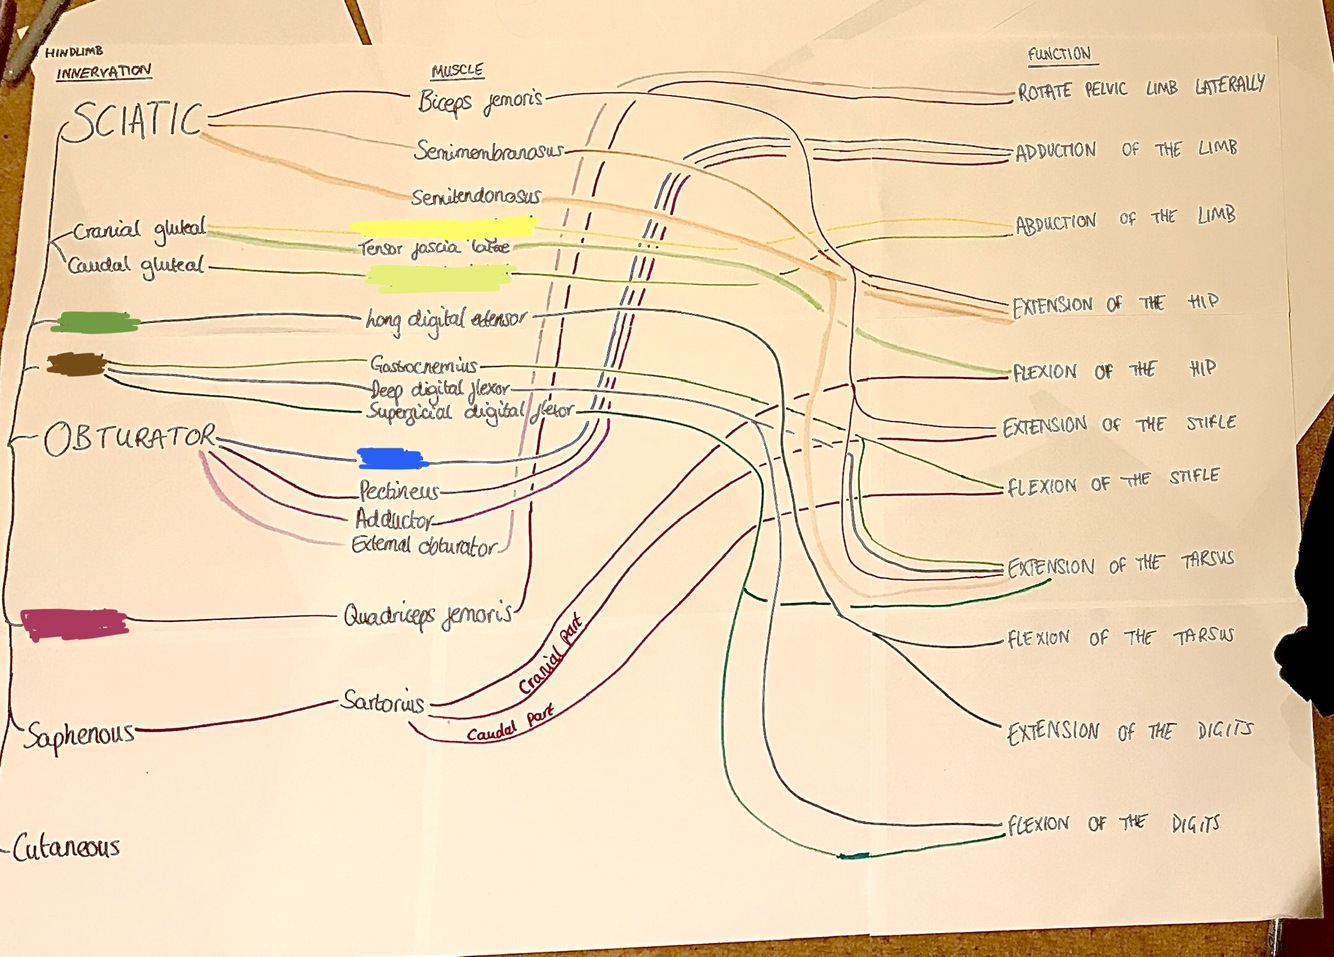 HINDLIMB
INNERVATION
MUSCLE
FUNCTION
SCIATIC
Biceps femoris
ROTATE PELVIC LIMB LATERALLY
Semimembranosus
ADDUCTION OF THE LIMB
Semitendonosus
Cranial gluteal
ABDUCTION OF THE LIMB
Tensor fascia latae
Caudal gluteal
EXTENSION OF THE HIP
Long digital extensor
Gastrocnemius
FLEXION OF THE HIP
Deep digital flexor
Superficial digital flexor
EXTENSION OF THE STIFLE
OBTURATOR
Pectineus
FLEXION OF THE STIFLE
Adductor
External obturator
EXTENSION OF THE TARSUS
Quadriceps femoris
FLEXION OF THE TARSUS
Cranial part
Sartorius
Caudal part
Saphenous
EXTENSION OF THE DIGITS
FLEXION OF THE DIGITS
Cutaneous